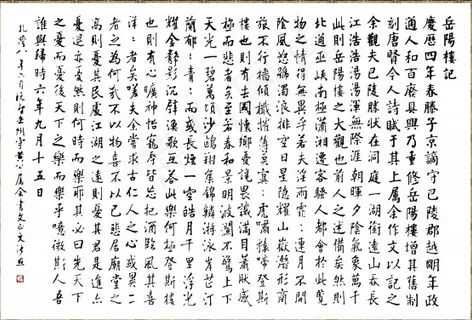 岳陽樓記
慶曆四年春滕子京謫守巴陵郡越明年政
通人和百廢具興乃重修岳陽樓增其舊制
刻唐賢今人詩賦于其上屬余作文以記之
余觀夫巴陵勝狀在洞庭一湖銜遠山吞長
江浩浩湯湯橫無際涯朝暉夕陰氣象萬千
此則岳陽樓之大觀也前人之述備矣然則
北通巫峽南極瀟湘遷客騷人多會於此覽
物之情得無異乎若夫淫雨霏霏連月不開
陰風怒號濁浪排空日星隱耀山嶽潛形商
旅不行檣傾楫摧薄暮冥冥虎嘯猿啼登斯
樓也則有去國懷鄉憂讒畏譏滿目蕭然感
極而悲者矣至若春和景明波瀾不驚上下
天光一碧萬頃沙鷗翔集錦鱗游泳岸芷汀
蘭郁郁青青而或長煙一空皓月千里浮光
耀金靜影沉璧漁歌互答此樂何極登斯樓
也則有心曠神怡寵辱皆忘把酒臨風其喜
洋洋者矣嗟夫余嘗求古仁人之心或異二
者之為何哉不以物喜不以己悲居廟堂之
高則憂其民處江湖之遠則憂其君是進亦
憂退亦憂然則何時而樂耶其必曰先天下
之憂而憂後天下之樂而樂乎噫微斯人吾
誰與歸時六年九月十五日